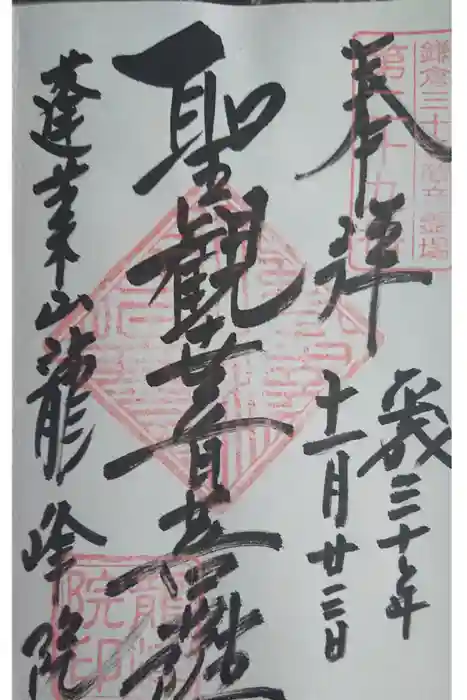 鎌倉三十
霊場
第二十九
奉拝
平成三十年
十一月廿三日
聖観世音菩薩
蓬莱山龍峰院
龍峰
院印